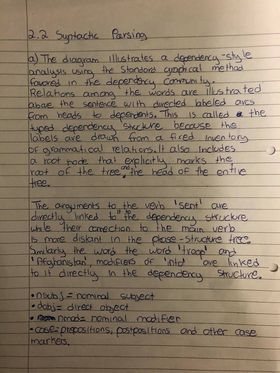 2.2 Syntactic Parsing
a) The diagram illustrates a dependency-style
analysis using the standard graphical method
favored in the dependency community.
Relations among the words are illustrated
above the sentence with directed labeled arcs
from heads to dependents. This is called a
typed dependency structure because the
labels are drawn from a fixed inventory
of grammatical relations. It also includes
a root node that explicitly marks the
root of the tree, the head of the entire
tree.
The arguments to the verb 'sent' are
directly linked to it in the dependency structure
while their connection to the main verb
is more distant in the phrase-structure tree.
Similarly the word the word 'troops' and
'Afghanistan', modifiers of 'into' are linked
to it directly in the dependency structure.
• nsubj = nominal subject
• dobj = direct object
• nmod = nominal modifier
• case = prepositions, postpositions and other case
markers.